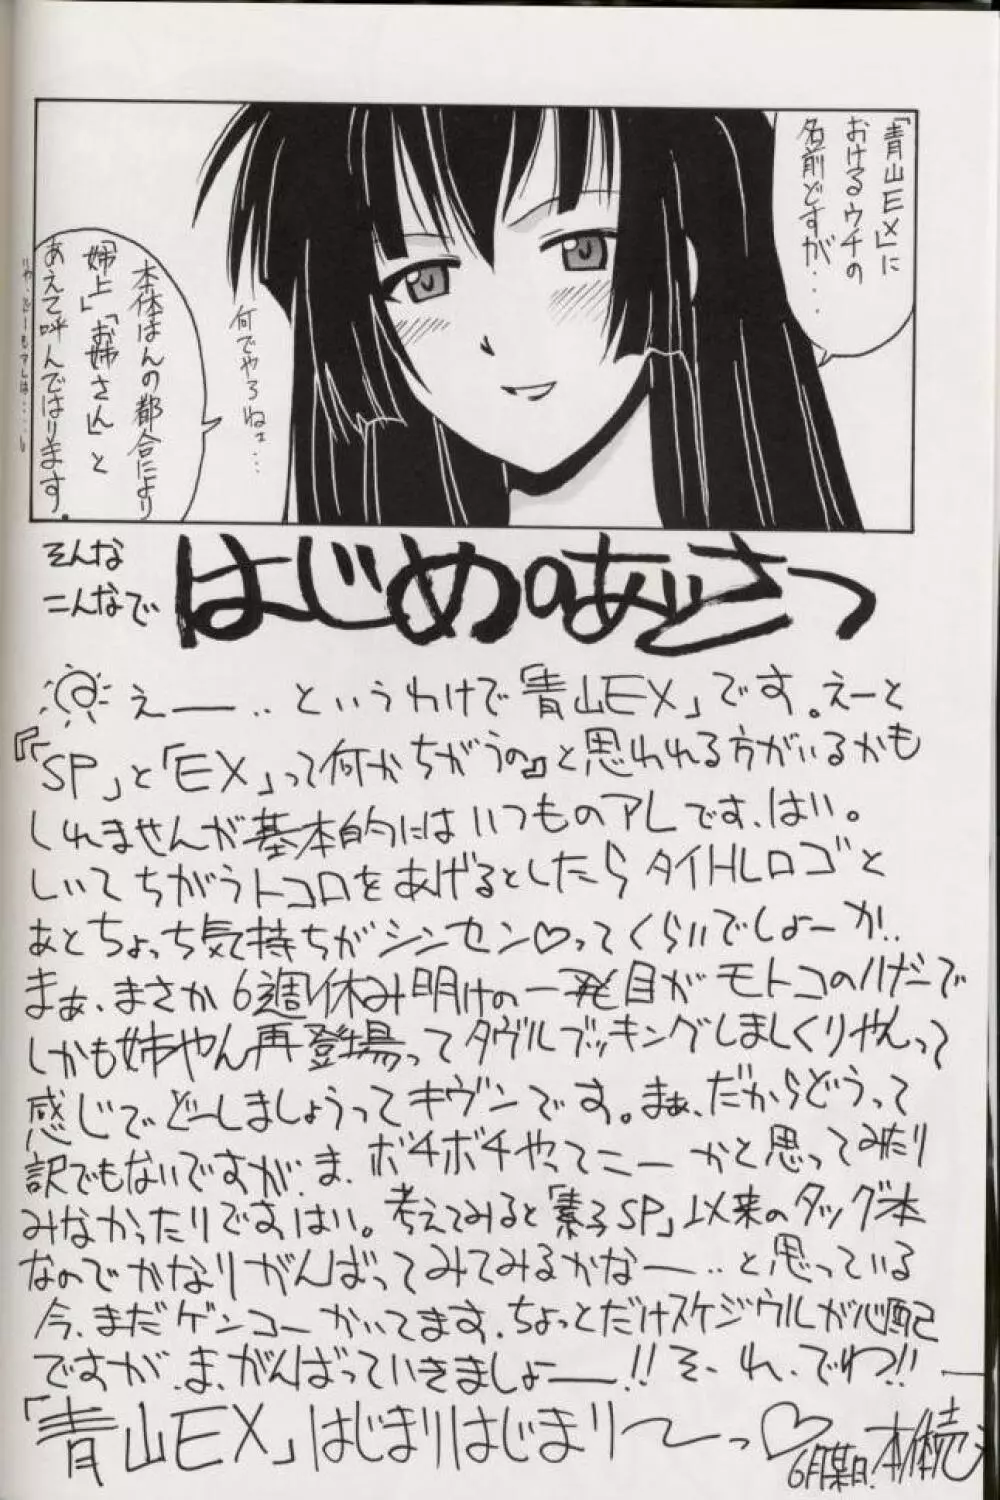 「青山EX」に
おけるウチの
名前どすが・・・
何でやろねェ・・・
本体はんの都合により
「姉上」「お姉さん」と
あえて呼んではります。
そんな
こんなで
はじめのあいさつ
えー・・というわけで「青山EX」です。えーと
『「SP」と「EX」って何かちがうの』と思われる方がいるかも
しれませんが基本的にはいつものアレです、はい。
しいてちがうトコロをあげるとしたらタイトルロゴと
あとちょっち気持ちがシンセン♡ってくらいでしょーか・・
まぁ、まさか6週休み明けの一発目がモトコのハダーで
しかも姉やん再登場ってダヴルブッキングしましくりやんって
感じで、どーしましょうってキヴンです。まぁ、だからどうって
訳でもないですが、ま、ボチボチやってこーかと思ってみたり
みなかったりですはい。考えてみると「素子SP」以来のタッグ本
なのでかなりがんばってみてみるかなー・・と思っている
今、まだゲンコーかいてます、ちょっとだけスケジウルが心配
ですが、ま、がんばっていきましょー!!そ、れ、でわ!!
「青山EX」はじまりはじまり〜っ♡
6月某日、本体続